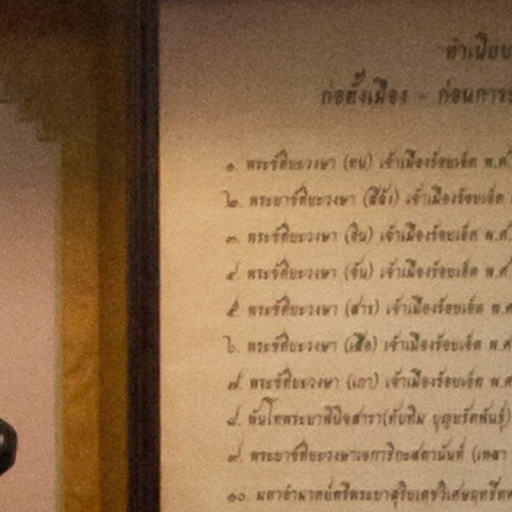 ทำเนียบ
ก่อตั้งเมือง - ก่อนการ
๑. พระขัติยะวงษา (ทน) เจ้าเมืองร้อยเอ็ด พ.ศ
๒. พระยาขัติยะวงษา (สีลัง) เจ้าเมืองร้อยเอ็ด
๓. พระขัติยะวงษา (อิน) เจ้าเมืองร้อยเอ็ด พ.ศ
๔. พระขัติยะวงษา (จัน) เจ้าเมืองร้อยเอ็ด พ.ศ
๕. พระขัติยะวงษา (สาร) เจ้าเมืองร้อยเอ็ด พ.ศ
๖. พระขัติยะวงษา (เสือ) เจ้าเมืองร้อยเอ็ด พ.ศ
๗. พระขัติยะวงษา (เภา) เจ้าเมืองร้อยเอ็ด พ.ศ
๘. พันโทพระยาพินิจสารา(ทับทิม บุญยรัตพันธุ์)
๙. พระยาขัติยะวงษาเอกาธิกะสตานันท์ (เหลา
๑๐. มหาอำมาตย์ตรีพระยาสุริยเดชวิเศษฤทธิ์